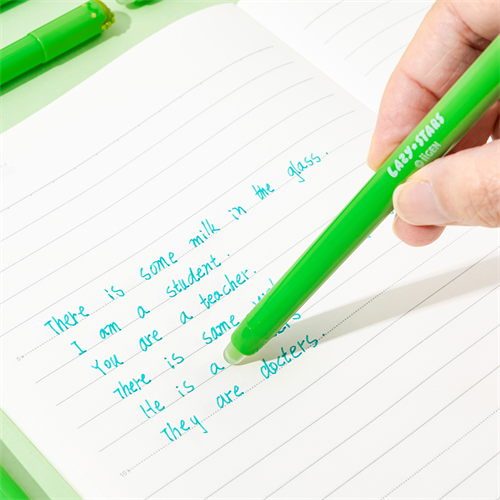 There is some milk in the glass.
I am a student.
You are a teacher.
There is same
He is a
They are docters.
LAZY★STARS
IIGEN